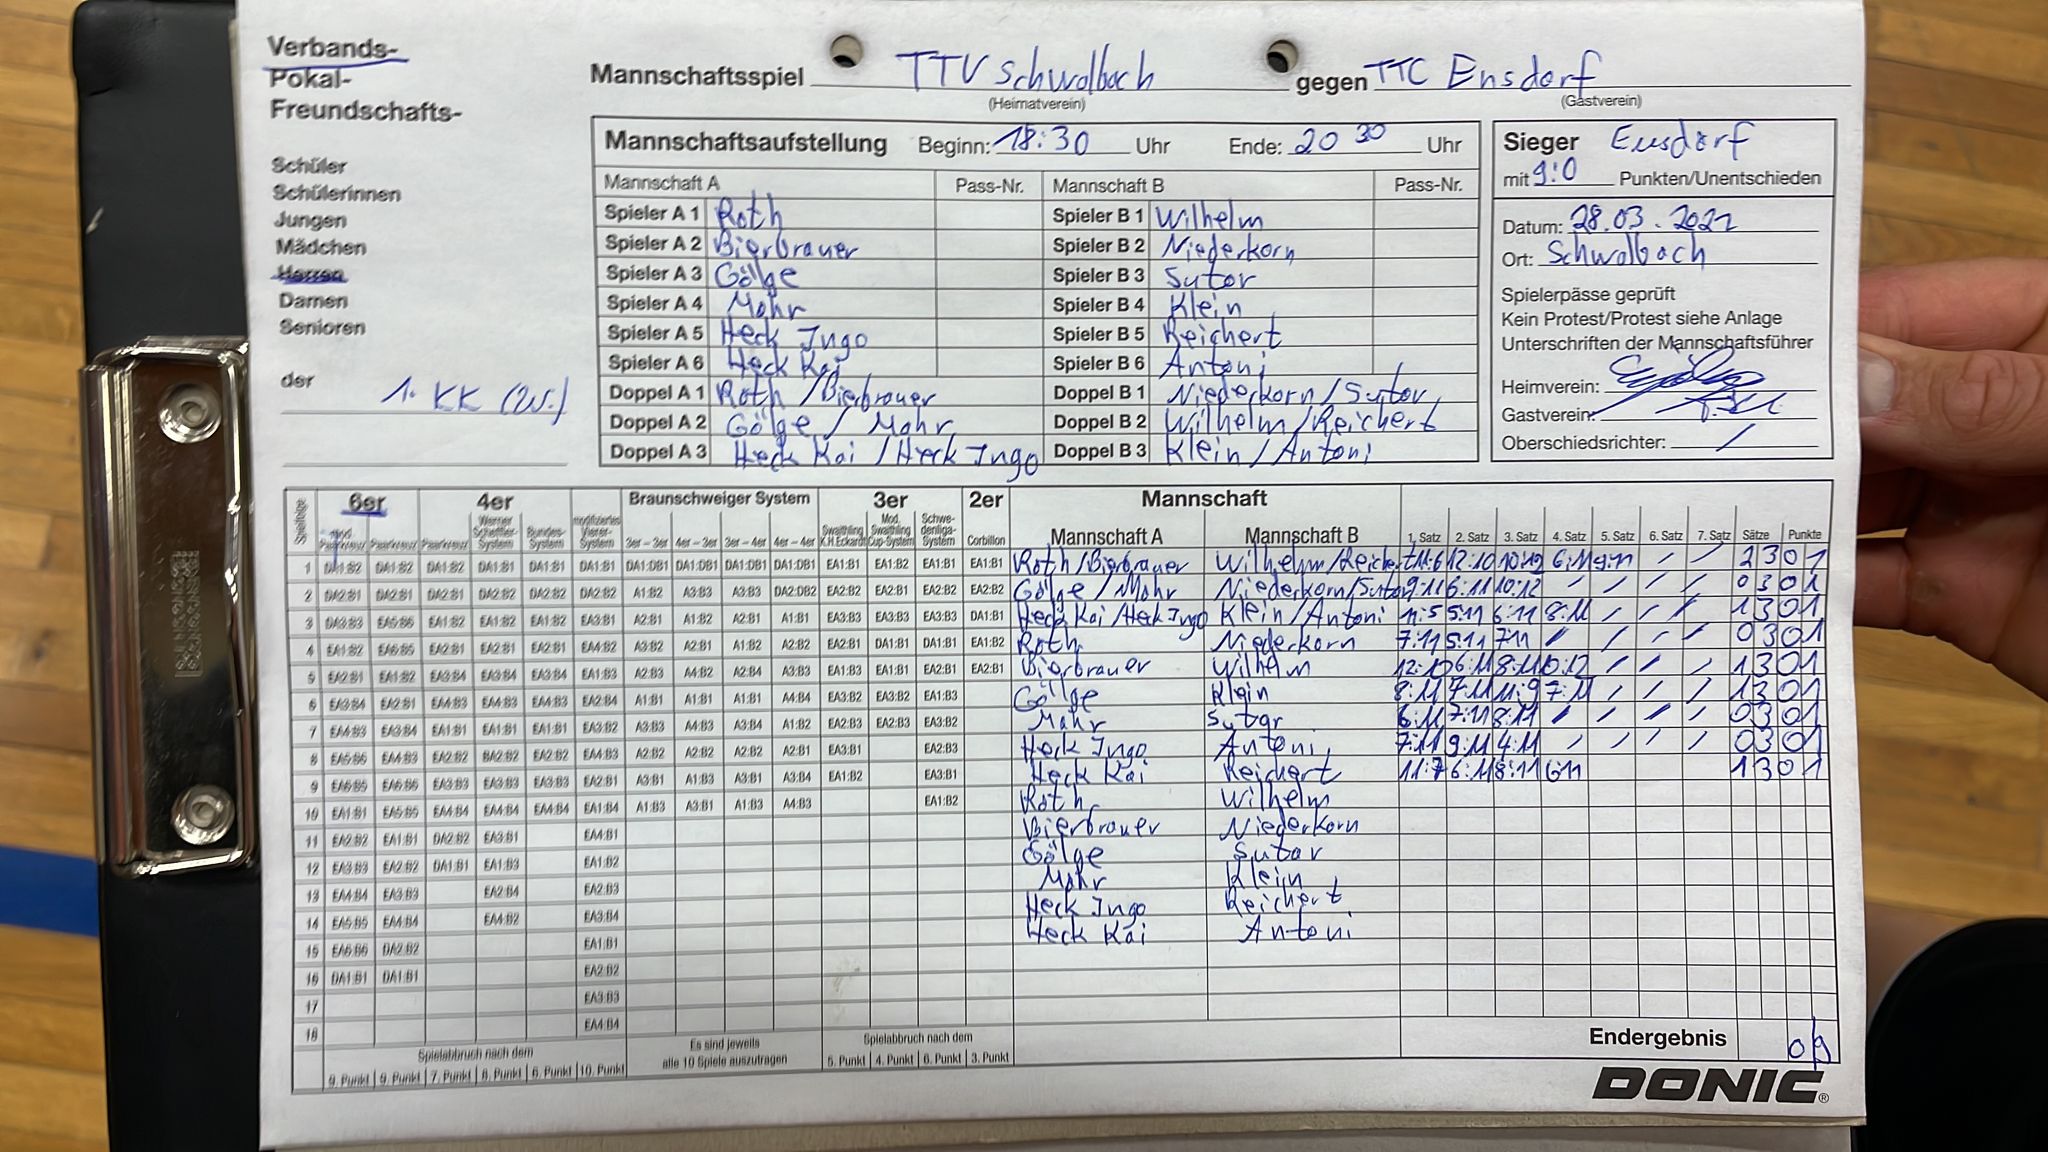 Verbands-
Pokal-
Freundschafts-
Schüler
Schülerinnen
Jungen
Mädchen
Herren
Damen
Senioren
der 1. KK (W.)
Mannschaftsspiel TTV Schwalbach gegen TTC Ensdorf
(Heimatverein) (Gastverein)
Mannschaftsaufstellung Beginn: 18:30 Uhr Ende: 20 30 Uhr
Mannschaft A Pass-Nr. Mannschaft B Pass-Nr.
Spieler A 1 Roth Spieler B 1 Wilhelm
Spieler A 2 Bierbrauer Spieler B 2 Niederkorn
Spieler A 3 Gölge Spieler B 3 Sutor
Spieler A 4 Mohr Spieler B 4 Klein
Spieler A 5 Heck Ingo Spieler B 5 Reichert
Spieler A 6 Heck Kai Spieler B 6 Antoni
Doppel A 1 Roth / Bierbrauer Doppel B 1 Niederkorn / Sutor
Doppel A 2 Gölge / Mohr Doppel B 2 Wilhelm / Reichert
Doppel A 3 Heck Kai / Heck Ingo Doppel B 3 Klein / Antoni
Sieger Ensdorf
mit 9:0 Punkten/Unentschieden
Datum: 28.03.2022
Ort: Schwalbach
Spielerpässe geprüft
Kein Protest/Protest siehe Anlage
Unterschriften der Mannschaftsführer
Heimverein:
Gastverein:
Oberschiedsrichter: /
Spielfolge 6er 4er Braunschweiger System 3er 2er Mannschaft
mod. Paarkreuz Paarkreuz Paarkreuz Werner Scheffler-System Bundes-System modifiziertes Vierer-System 3er – 3er 4er – 3er 3er – 4er 4er – 4er Swaithling K.H.Eckardt Mod. Swaithling Cup-System Schwe-denliga-System Corbillon Mannschaft A Mannschaft B 1. Satz 2. Satz 3. Satz 4. Satz 5. Satz 6. Satz 7. Satz Sätze Punkte
1 DA1:B2 DA1:B2 DA1:B2 DA1:B1 DA1:B1 DA1:B1 DA1:DB1 DA1:DB1 DA1:DB1 DA1:DB1 EA1:B1 EA1:B2 EA1:B1 EA1:B1 Roth / Bierbrauer Wilhelm / Reichert 11:6 12:10 10:12 6:11 9:11 / / 2 3 0 1
2 DA2:B1 DA2:B1 DA2:B1 DA2:B2 DA2:B2 DA2:B2 A1:B2 A3:B3 A3:B3 DA2:DB2 EA2:B2 EA2:B1 EA2:B2 EA2:B2 Gölge / Mohr Niederkorn/Sutor 9:11 6:11 10:12 / / / / 0 3 0 1
3 DA3:B3 EA5:B6 EA1:B2 EA1:B2 EA1:B1 EA3:B1 A2:B1 A1:B2 A2:B1 A1:B1 EA3:B3 EA3:B3 EA3:B3 DA1:B1 Heck Kai / Heck Ingo Klein / Antoni 11:5 5:11 6:11 8:11 / / / 1 3 0 1
4 EA1:B2 EA6:B5 EA2:B1 EA2:B1 EA2:B1 EA4:B2 A3:B2 A2:B1 A1:B2 A2:B2 EA2:B1 DA1:B1 DA1:B1 EA1:B2 Roth Niederkorn 7:11 5:11 7:11 / / / / 0 3 0 1
5 EA2:B1 EA1:B2 EA3:B4 EA3:B4 EA3:B4 EA1:B3 A2:B3 A4:B2 A2:B4 A3:B3 EA1:B3 EA1:B1 EA2:B1 EA2:B1 Bierbrauer Wilhelm 12:10 6:11 8:11 10:12 / / / 1 3 0 1
6 EA3:B4 EA2:B1 EA4:B3 EA4:B3 EA4:B3 EA2:B4 A1:B1 A1:B1 A1:B1 A4:B4 EA3:B2 EA3:B2 EA1:B3 Gölge Klein 8:11 7:11 11:9 7:11 / / / 1 3 0 1
7 EA4:B3 EA3:B4 EA1:B1 EA1:B1 EA1:B1 EA3:B2 A3:B3 A4:B3 A3:B4 A1:B2 EA2:B3 EA2:B3 EA3:B2 Mohr Sutor 6:11 7:11 8:11 / / / / 0 3 0 1
8 EA5:B6 EA4:B3 EA2:B2 BA2:B2 EA2:B2 EA4:B3 A2:B2 A2:B2 A2:B2 A2:B1 EA3:B1 EA2:B3 Heck Ingo Antoni 7:11 9:11 4:11 / / / / 0 3 0 1
9 EA6:B5 EA6:B6 EA3:B3 EA3:B3 EA3:B3 EA2:B1 A3:B1 A1:B3 A3:B1 A3:B4 EA1:B2 EA3:B1 Heck Kai Reichert 11:7 6:11 8:11 6:11 1 3 0 1
10 EA1:B1 EA5:B5 EA4:B4 EA4:B4 EA4:B4 EA1:B4 A1:B3 A3:B1 A1:B3 A4:B3 EA1:B2 Roth Wilhelm
11 EA2:B2 EA1:B1 DA2:B2 EA3:B1 EA4:B1 Bierbrauer Niederkorn
12 EA3:B3 EA2:B2 DA1:B1 EA1:B3 EA1:B2 Gölge Sutor
13 EA4:B4 EA3:B3 EA2:B4 EA2:B3 Mohr Klein
14 EA5:B5 EA4:B4 EA4:B2 EA3:B4 Heck Ingo Reichert
15 EA6:B6 DA2:B2 EA1:B1 Heck Kai Antoni
16 DA1:B1 DA1:B1 EA2:B2
17 EA3:B3
18 EA4:B4
Spielabbruch nach dem Es sind jeweils alle 10 Spiele auszutragen Spielabbruch nach dem Endergebnis 0 9
9. Punkt 9. Punkt 7. Punkt 8. Punkt 6. Punkt 10. Punkt 5. Punkt 4. Punkt 6. Punkt 3. Punkt
DONIC®